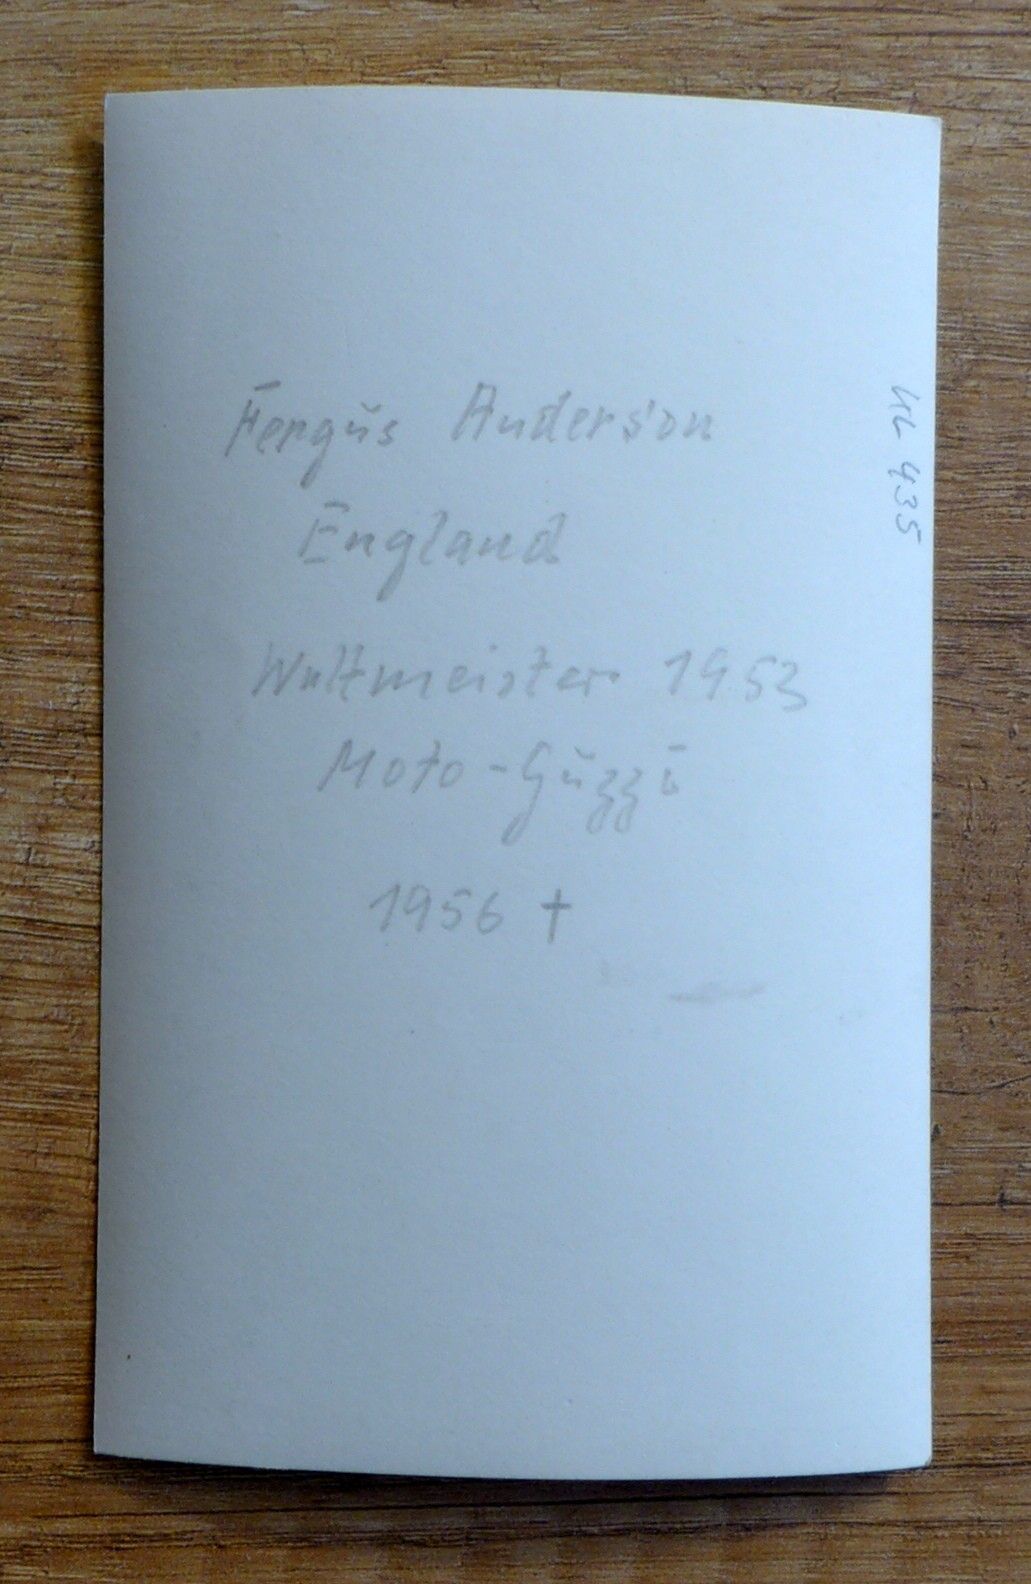 Fergus Anderson
England
Weltmeister 1953
Moto-Guzzi
1956 †
435